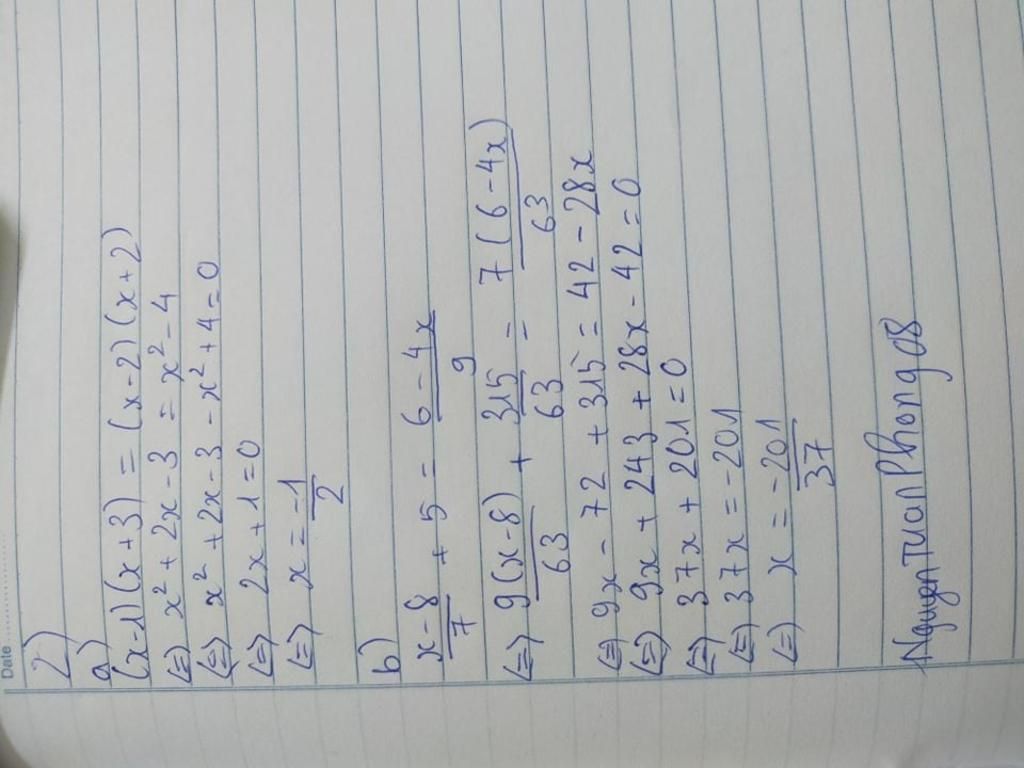 Date
2)
a)
(x-1)(x+3) = (x-2)(x+2)
(=) x² + 2x - 3 = x² - 4
(=) x² + 2x - 3 - x² + 4 = 0
(=) 2x + 1 = 0
(=) x = -1/2
b)
x-8/7 + 5 = 6-4x/9
(=) 9(x-8)/63 + 315/63 = 7(6-4x)/63
(=) 9x - 72 + 315 = 42 - 28x
(=) 9x + 243 + 28x - 42 = 0
(=) 37x + 201 = 0
(=) 37x = -201
(=) x = -201/37
NguyenTuanPhong 08